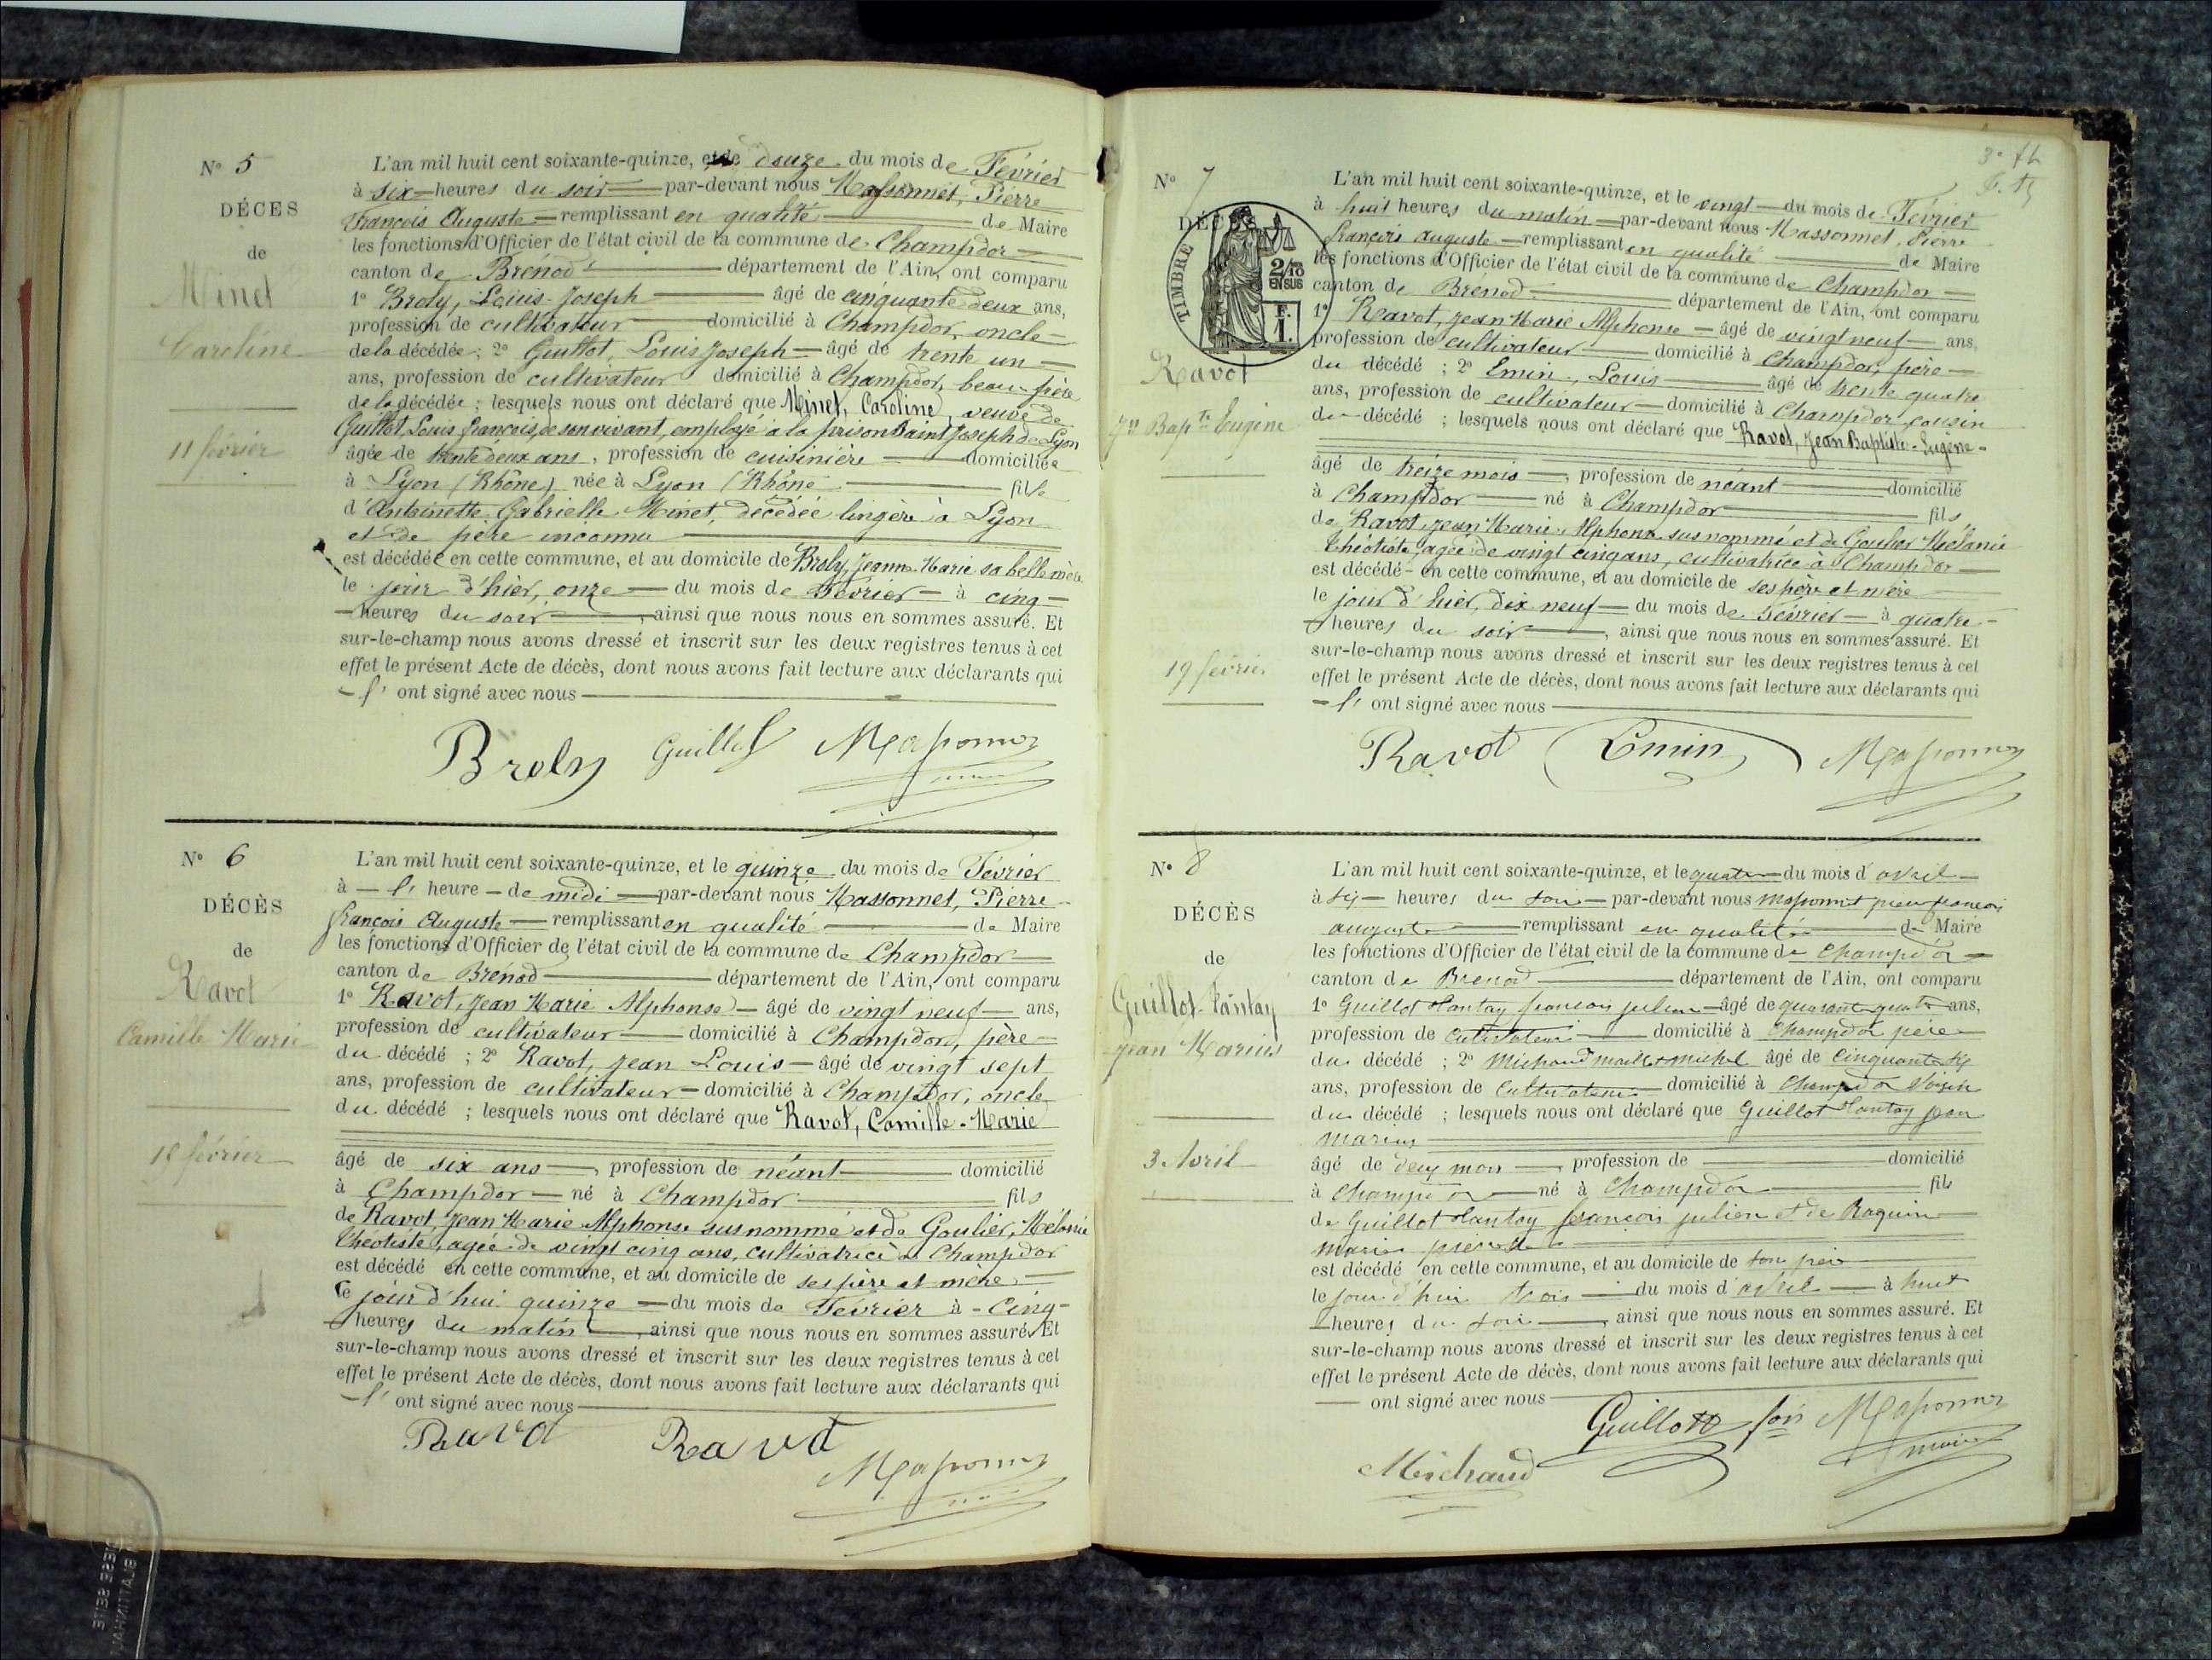 N° 5
DÉCES
de
Minet
Caroline
11 février
L'an mil huit cent soixante-quinze, et le douze du mois de Février
à six heures du soir par-devant nous Massonnet, Pierre
François Auguste remplissant en qualité de Maire
les fonctions d'Officier de l'état civil de la commune de Champdor
canton de Brénod département de l'Ain, ont comparu
1° Broly, Louis-Joseph âgé de cinquante deux ans,
profession de cultivateur domicilié à Champdor, oncle
de la décédée ; 2° Guillot, Louis Joseph âgé de trente un
ans, profession de cultivateur domicilié à Champdor, beau-frère
de la décédée ; lesquels nous ont déclaré que Minet, Caroline, veuve de
Guillot, Louis françois, de son vivant, employé à la prison Saint Joseph de Lyon
âgée de trente deux ans, profession de cuisinière domiciliée
à Lyon (Rhône) née à Lyon (Rhône fille
d'Antoinette Gabrielle Minet, décédée lingère à Lyon
et de père inconnu
est décédée en cette commune, et au domicile de Broly, Jeanne-Marie sa belle mère
le jour d'hier, onze du mois de Février à cinq
heures du soir, ainsi que nous nous en sommes assuré. Et
sur-le-champ nous avons dressé et inscrit sur les deux registres tenus à cet
effet le présent Acte de décès, dont nous avons fait lecture aux déclarants qui
ont signé avec nous
Broly Guillot Massonnet
N° 6
DÉCÈS
de
Ravot
Camille Marie
février
L'an mil huit cent soixante-quinze, et le quinze du mois de Février
à l' heure de midi par-devant nous Massonnet, Pierre
françois Auguste remplissant en qualité de Maire
les fonctions d'Officier de l'état civil de la commune de Champdor
canton de Brénod département de l'Ain, ont comparu
1° Ravot, Jean Marie Alphonse âgé de vingt neuf ans,
profession de cultivateur domicilié à Champdor, père
du décédé ; 2° Ravot, Jean Louis âgé de vingt sept
ans, profession de cultivateur domicilié à Champdor, oncle
du décédé ; lesquels nous ont déclaré que Ravot, Camille-Marie
âgé de six ans, profession de néant domicilié
à Champdor né à Champdor fils
de Ravot, Jean Marie Alphonse susnommé et de Goulier, Mélanie
Théotiste, agée de vingt cinq ans, cultivatrice à Champdor
est décédé en cette commune, et au domicile de ses père et mère
le jour d'hui quinze du mois de Février à Cinq
heures du matin, ainsi que nous nous en sommes assuré. Et
sur-le-champ nous avons dressé et inscrit sur les deux registres tenus à cet
effet le présent Acte de décès, dont nous avons fait lecture aux déclarants qui
ont signé avec nous
Ravot Ravot
Massonnet
N° 7
TIMBRE
2/10 EN SUS
F. 1.
Ravot
Jn Bapte Eugène
19 février
L'an mil huit cent soixante-quinze, et le vingt du mois de Février
à huit heures du matin par-devant nous Massonnet, Pierre
françois Auguste remplissant en qualité de Maire
les fonctions d'Officier de l'état civil de la commune de Champdor
canton de Brénod département de l'Ain, ont comparu
1° Ravot, Jean Marie Alphonse âgé de vingt neuf ans,
profession de cultivateur domicilié à Champdor, père
du décédé ; 2° Emin, Louis âgé de trente quatre
ans, profession de cultivateur domicilié à Champdor cousin
du décédé ; lesquels nous ont déclaré que Ravot, Jean Baptiste-Eugène
âgé de treize mois, profession de néant domicilié
à Champdor né à Champdor fils
de Ravot, Jean Marie, Alphonse susnommé et de Goulier Mélanie
Théotiste, agée de vingt cinq ans, cultivatrice à Champdor
est décédé en cette commune, et au domicile de ses père et mère
le jour d'hier, dix neuf du mois de Février à quatre
heures du soir, ainsi que nous nous en sommes assuré. Et
sur-le-champ nous avons dressé et inscrit sur les deux registres tenus à cet
effet le présent Acte de décès, dont nous avons fait lecture aux déclarants qui
ont signé avec nous
Ravot Emin Massonnet
N° 8
DÉCÈS
de
Guillot-Lantay
Jean Marius
3 Avril
L'an mil huit cent soixante-quinze, et le quatre du mois d'avril
à six heures du soir par-devant nous Massonnet pierre francois
auguste remplissant en qualité de Maire
les fonctions d'Officier de l'état civil de la commune de Champdor
canton de Brenod département de l'Ain, ont comparu
1° Guillot Lantay francois julien âgé de quarante quatre ans,
profession de Cultivateur domicilié à Champdor père
du décédé ; 2° Michaud michel âgé de cinquante six
ans, profession de Cultivateur domicilié à Champdor voisin
du décédé ; lesquels nous ont déclaré que Guillot Lantay jean
marius
âgé de deux mois, profession de domicilié
à Champdor né à Champdor fils
de Guillot Lantay françois julien et de Roguin
marie pierrette
est décédé en cette commune, et au domicile de son père
le jour d'hier trois du mois d'avril à huit
heures du soir, ainsi que nous nous en sommes assuré. Et
sur-le-champ nous avons dressé et inscrit sur les deux registres tenus à cet
effet le présent Acte de décès, dont nous avons fait lecture aux déclarants qui
ont signé avec nous
Guillot fois Massonnet
maire
Michaud